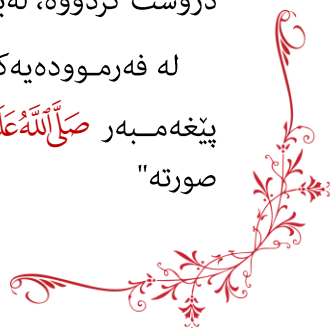 دروست کردووە، لەبـ
لە فەرمـوودەیەکـ
پێغەمـبەر صَلَّى اللَّهُ عَلَـ
صورتە"